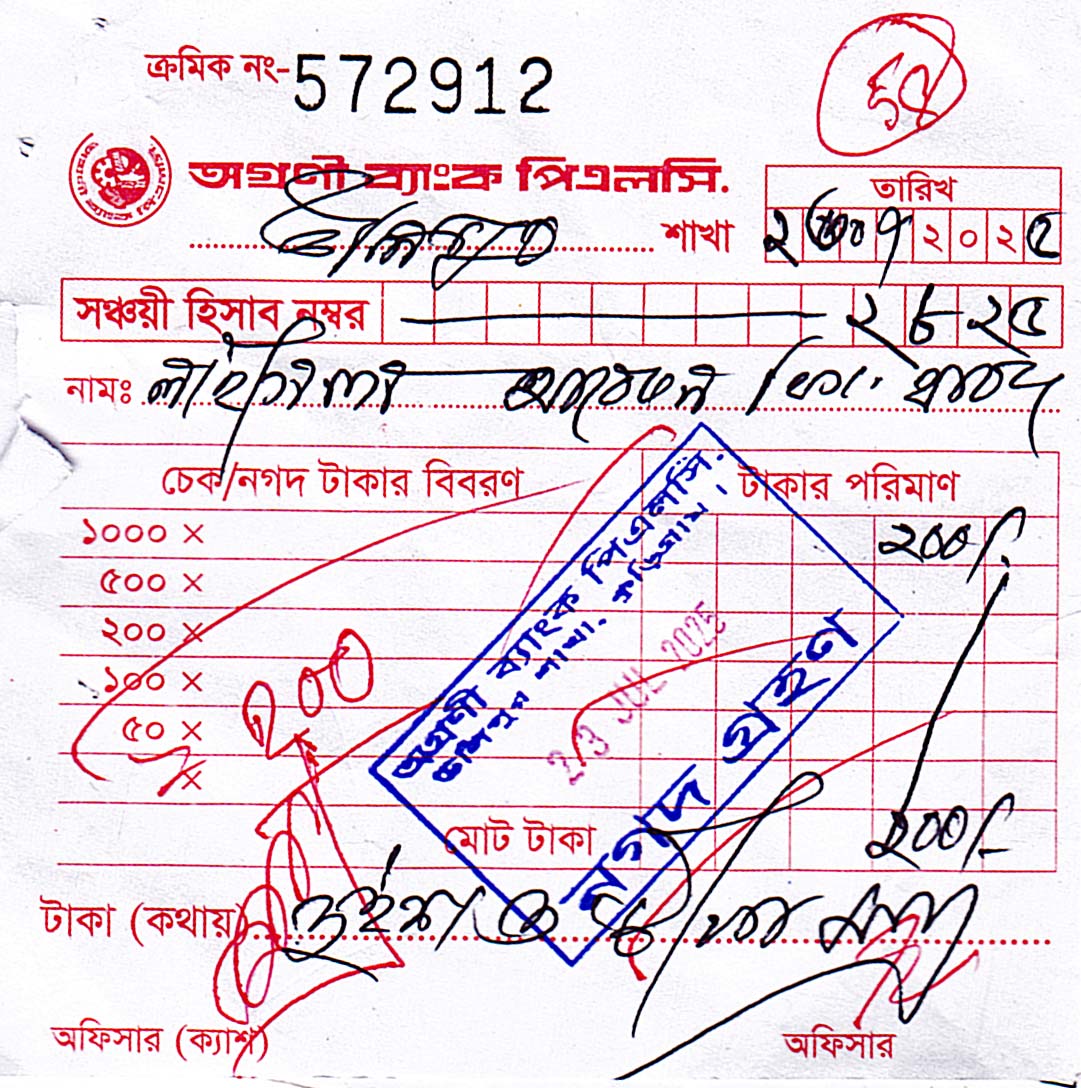 ক্রমিক নং-572912
অগ্রণী ব্যাংক পিএলসি.
শাখা
তারিখ
২৩০৭২০২৫
সঞ্চয়ী হিসাব নম্বর ২৮২৫
নামঃ
চেক/নগদ টাকার বিবরণ টাকার পরিমাণ
১০০০ × ২০০/-
৫০০ ×
২০০ ×
১০০ ×
৫০ ×
×
২০০
মোট টাকা ২০০/-
অগ্রণী ব্যাংক পিএলসি.
উলিপুর শাখা. কুড়িগ্রাম।
23 JUL 2025
নগদ গ্রহণ
টাকা (কথায়) দুইশত টাকা মাত্র
অফিসার (ক্যাশ) অফিসার